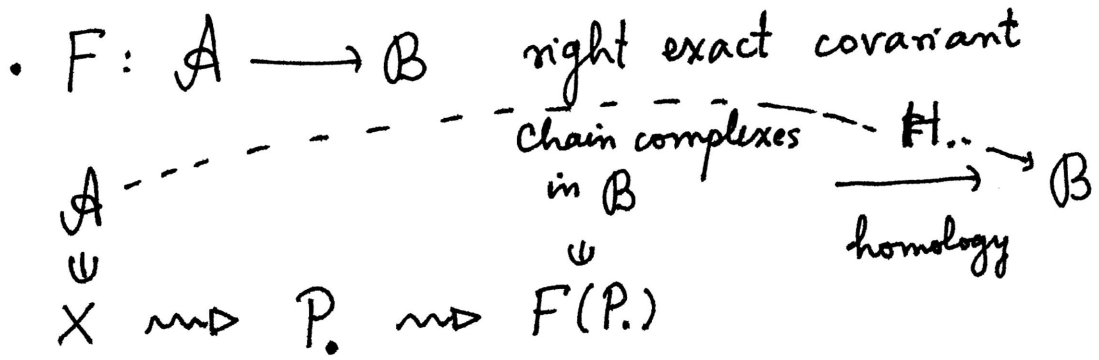 • F: 𝒜 ⟶ ℬ right exact covariant
chain complexes H..
𝒜 in ℬ ⟶ ℬ
homology
X ⇝ P. ⇝ F(P.)